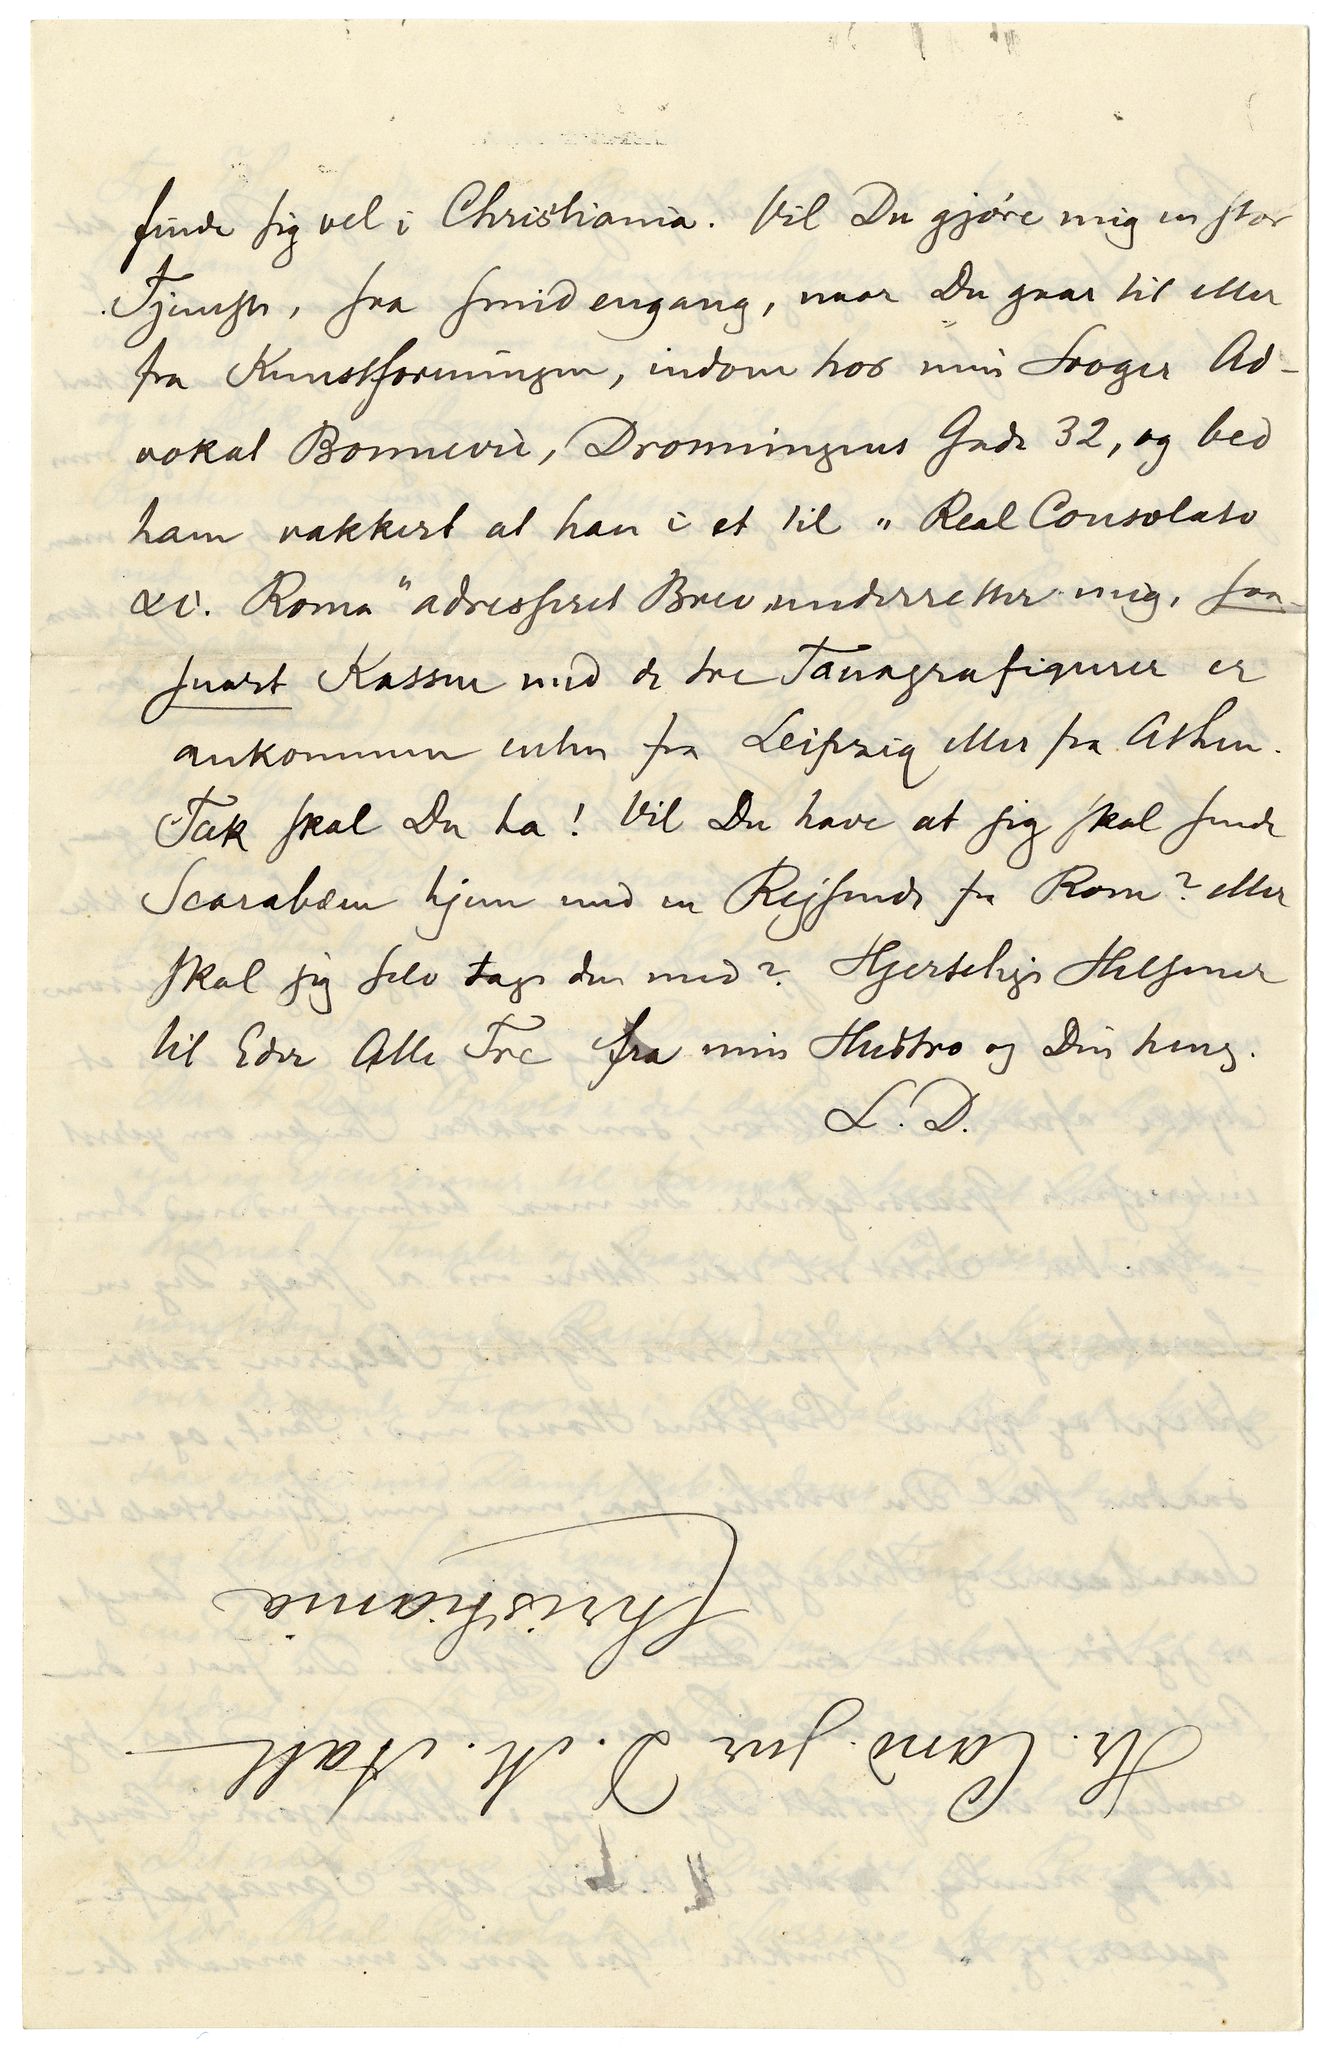 finde sig vel i Christiania. Vil Du gjöre mig en stor
Tjeneste, saa smid engang, naar Du gaar til eller
fra Kunstforeningen, indom hos min Svoger Ad-
vokat Bonnevie, Dronningens Gade 32, og bed
ham vakkert at han i et til „Real Consolato
&c. Roma" adresseret Brev underretter mig, saa-
snart Kassen med de tre Tanagrafigurer er
ankommen enten fra Leipzig eller fra Athen.
Tak skal Du ha! Vil Du have at jeg skal sende
Scarabæen hjem med en Rejsende fra Rom? eller
skal jeg selv tage den med? Hjertelige Hilsener
til Eder Alle Tre fra min Hustro og Din heng.
L. D.
Hr. Cand. jur D. M. Aall
Christiania